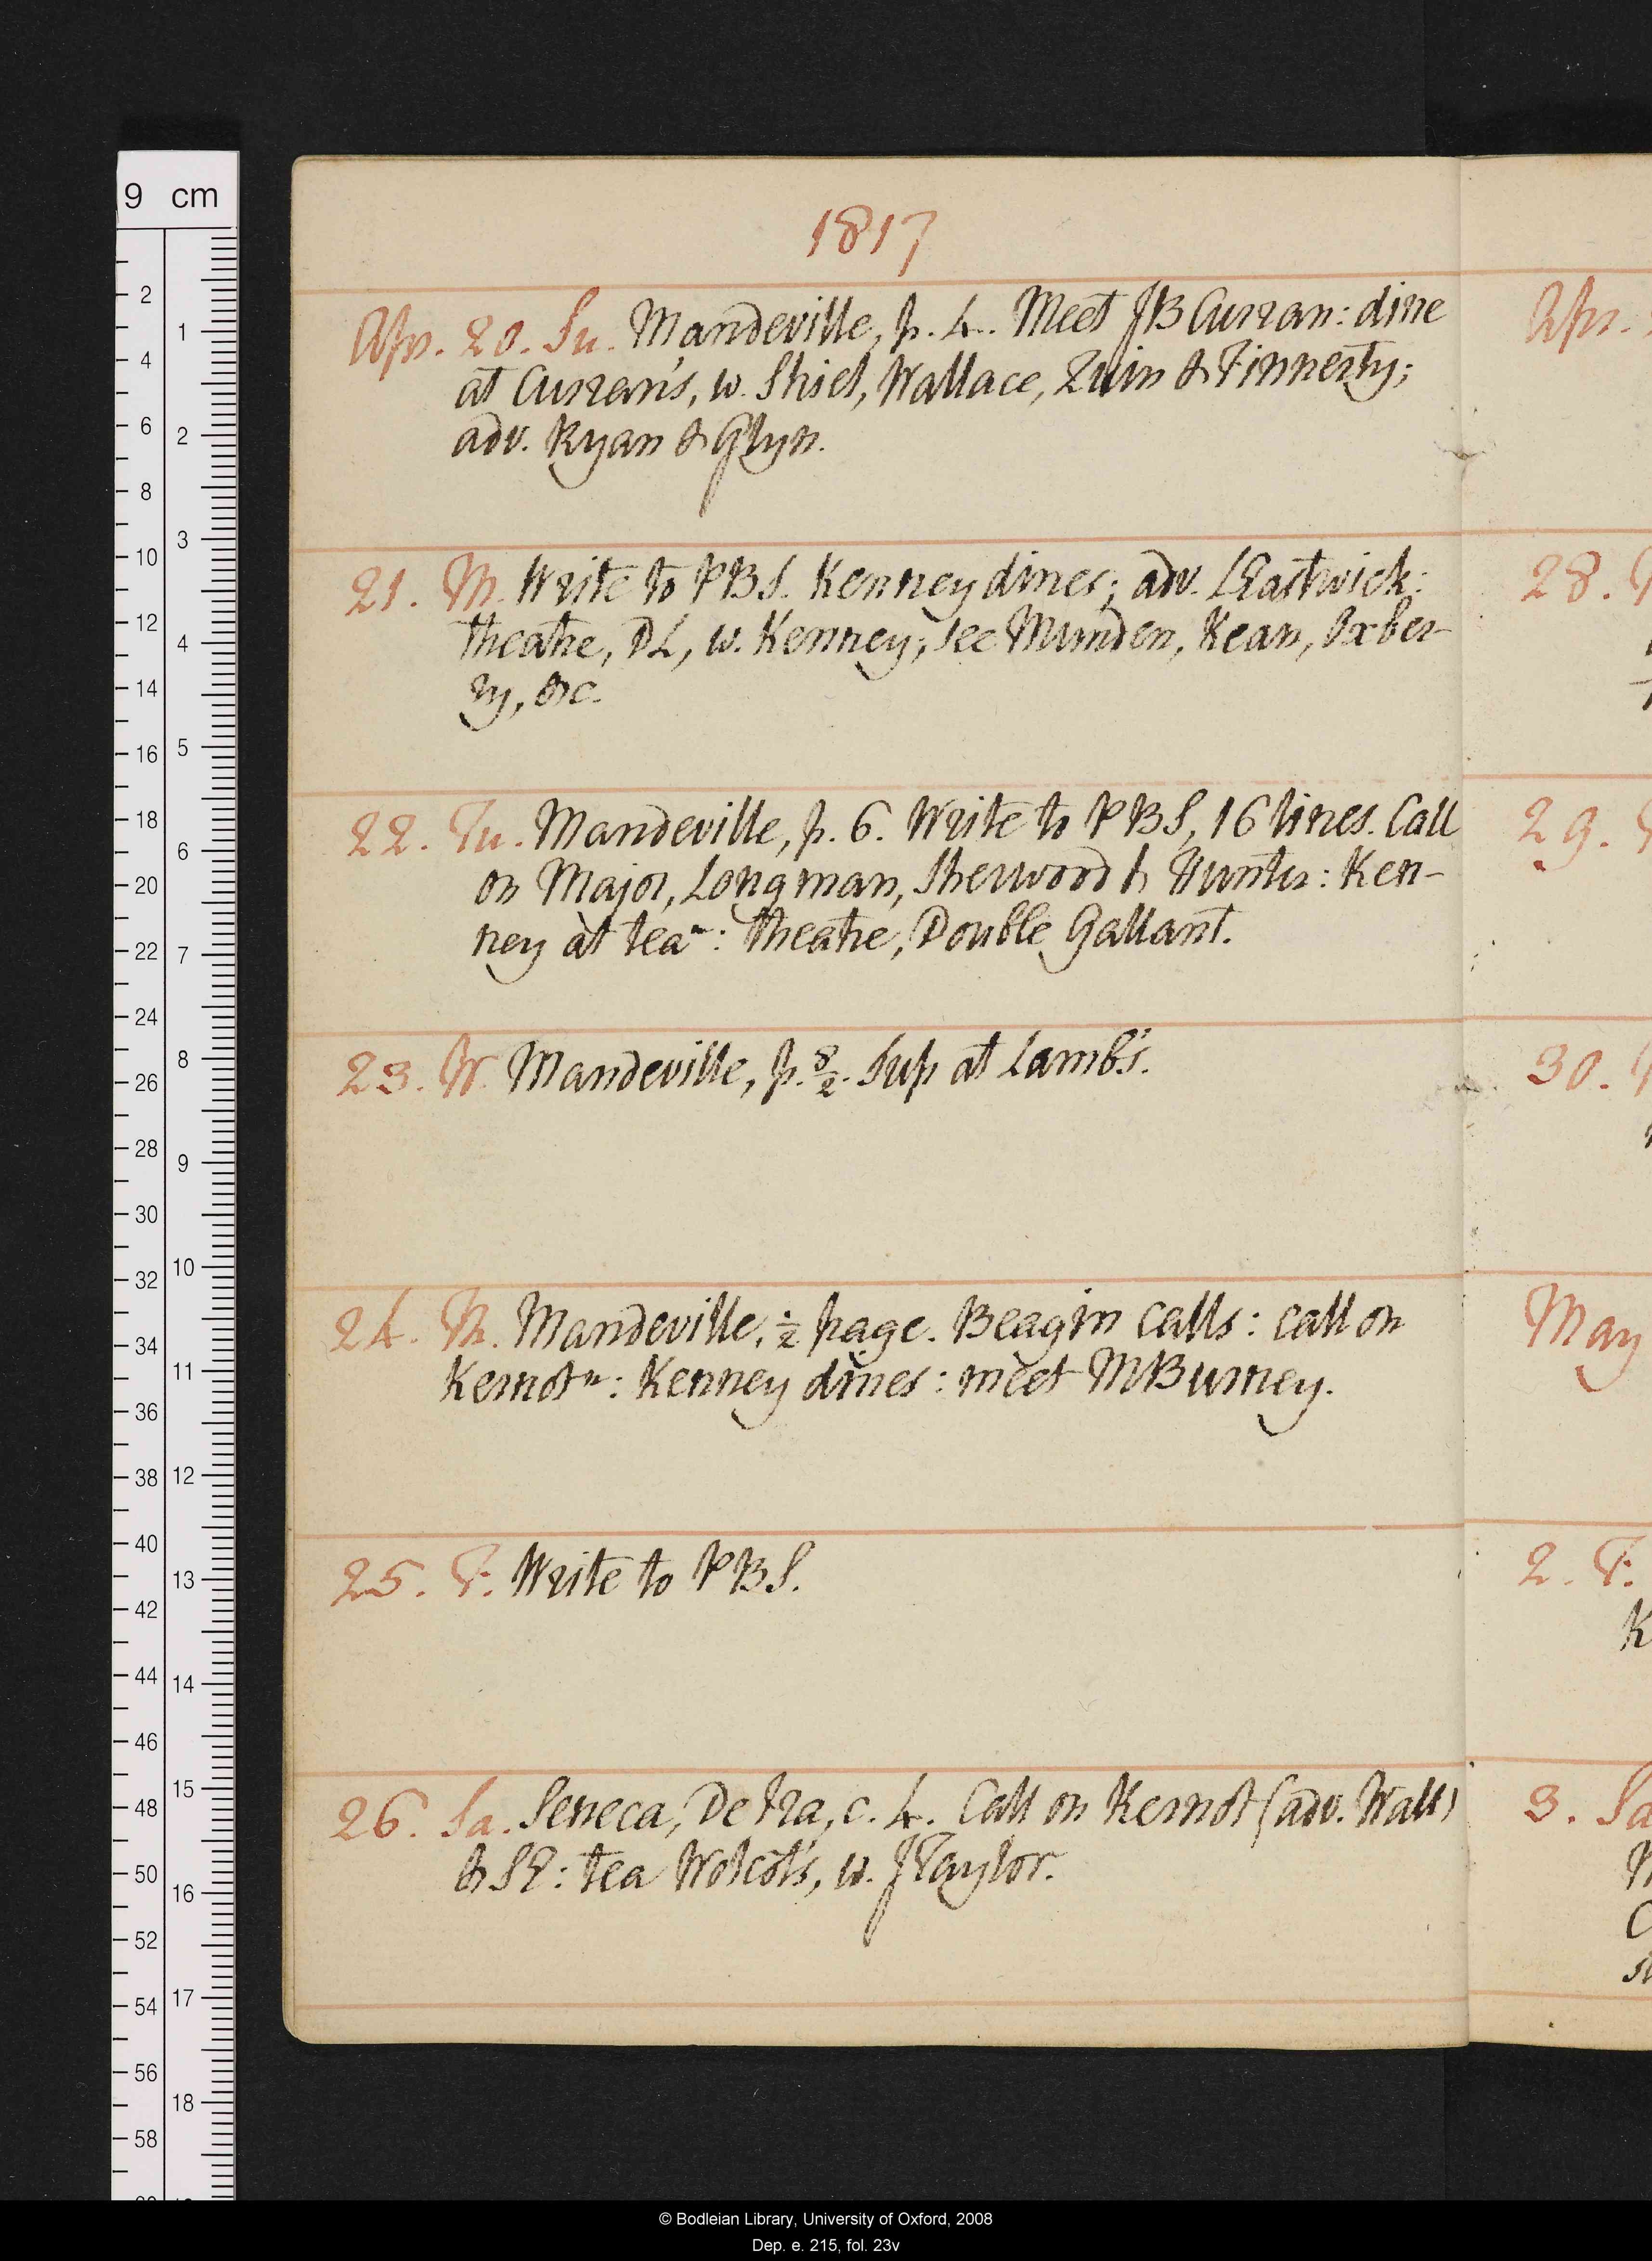 1817
Apr. 20. Su. Mandeville, p. 4. Meet JB Curran: dine
at Curran's, w. Shiel, Wallace, Quin & Finnerty;
adv. Ryan & Glyn.
21. M. Write to PBS. Kenney dines; adv. L Eastwick:
theatre, DL, w. Kenney; see Munden, Kean, Oxber-
ry, &c.
22. Tu. Mandeville, p. 6. Write to PBS, 16 lines. Call
on Major, Longman, Sherwood & Hunter: Ken-
ney at tea: theatre, Double Gallant.
23. W. Mandeville, p. 8/2. Sup at Lamb's.
24. Th. Mandeville, ½ page. Beagin calls: call on
Kernot n: Kenney dines: meet MBurney.
25. F. Write to PBS.
26. Sa. Seneca, De Ira, c. 4. Call on Kernot (adv. Wall)
& : tea Wolcot's, w. J Taylor.
Apr.
28.
29.
30.
May
2. F.
K
3. Sa
9 cm
© Bodleian Library, University of Oxford, 2008
Dep. e. 215, fol. 23v